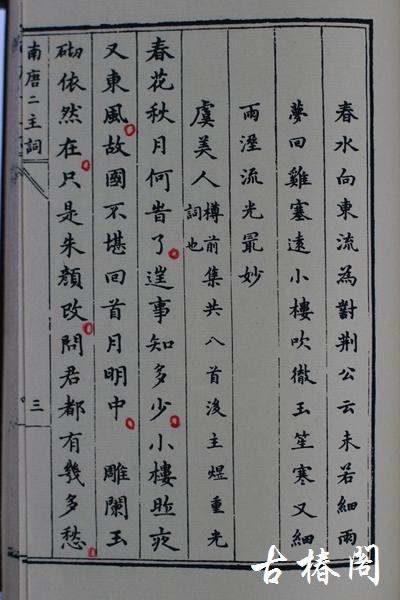 春水向東流為對荆公云未若細雨
夢回雞塞遠小樓吹徹玉笙寒又細
雨溼流光最妙
虞美人
樽前集共八首後主煜重光
詞也
春花秋月何旹了遑事知多少小樓昨夜
又東風故國不堪回首月明中 雕闌玉
砌依然在只是朱顏改問君都有幾多愁
南唐二主詞
三
古椿閣